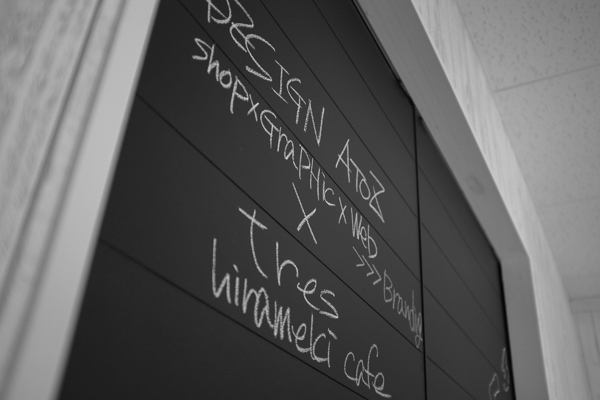 DESIGN AToZ
shop x GraPHic x Web
>>> Branding
X
tres
hirameki cafe